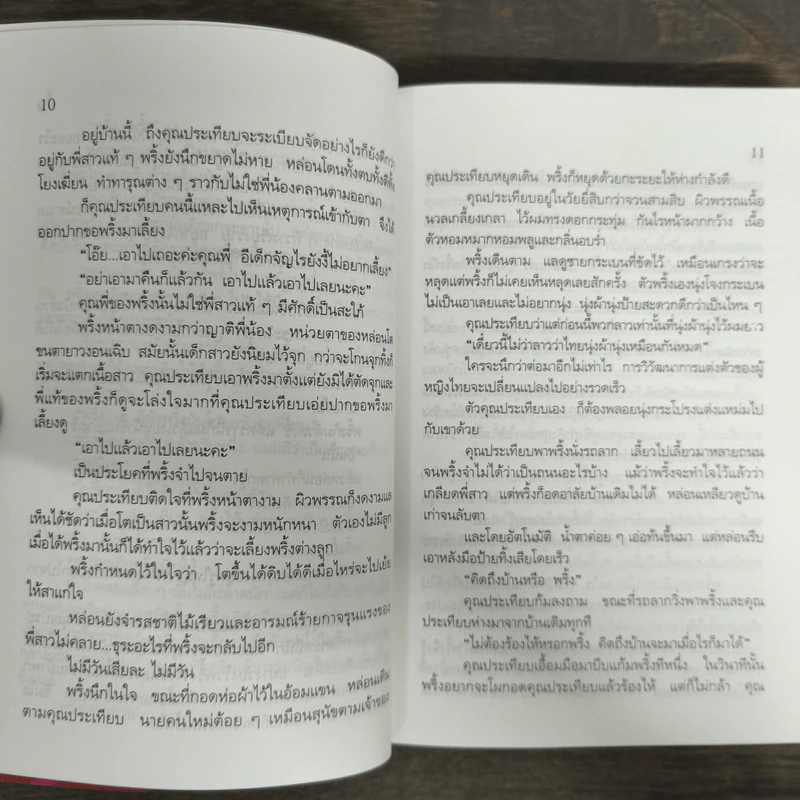 10
อยู่บ้านนี้ ถึงคุณประเทียบจะระเบียบจัดอย่างไรก็ยังดีกว่า
อยู่กับพี่สาวแท้ ๆ พริ้งยังนึกขยาดไม่หาย หล่อนโดนทั้งตบทั้งตีทั้ง
โยงเฆี่ยน ทำทารุณต่าง ๆ ราวกับไม่ใช่พี่น้องคลานตามออกมา
ก็คุณประเทียบคนนี้แหละไปเห็นเหตุการณ์เข้ากับตา จึงได้
ออกปากขอพริ้งมาเลี้ยง
“โอ๊ย...เอาไปเถอะค่ะคุณพี่ อีเด็กจัญไรยังงี้ไม่อยากเลี้ยง”
“อย่าเอามาคืนก็แล้วกัน เอาไปแล้วเอาไปเลยนะคะ”
คุณพี่ของพริ้งนั้นไม่ใช่พี่สาวแท้ ๆ มีศักดิ์เป็นสะใภ้
พริ้งหน้าตางดงามกว่าญาติพี่น้อง หน่วยตาของหล่อนโต
ขนตายาวงอนเฉิบ สมัยนั้นเด็กสาวยังนิยมไว้จุก กว่าจะโกนจุกทิ้งก็
เริ่มจะแตกเนื้อสาว คุณประเทียบเอาพริ้งมาตั้งแต่ยังมิได้ตัดจุกและ
พี่แท้ของพริ้งก็ดูจะโล่งใจมากที่คุณประเทียบเอ่ยปากขอพริ้งมา
เลี้ยงดู
“เอาไปแล้วเอาไปเลยนะคะ”
เป็นประโยคที่พริ้งจำไปจนตาย
คุณประเทียบติดใจที่พริ้งหน้าตางาม ผิวพรรณก็งดงามแล
เห็นได้ชัดว่าเมื่อโตเป็นสาวนั้นพริ้งจะงามหนักหนา ตัวเองไม่มีลูก
เมื่อได้พริ้งมานั้นก็ได้ทำใจไว้แล้วว่าจะเลี้ยงพริ้งต่างลูก
พริ้งกำหนดไว้ในใจว่า โตขึ้นได้ดิบได้ดีเมื่อไหร่จะไปเย้ย
ให้สาแก่ใจ
หล่อนยังจำรสชาติไม้เรียวและอารมณ์ร้ายกาจรุนแรงของ
พี่สาวไม่คลาย...ธุระอะไรที่พริ้งจะกลับไปอีก
ไม่มีวันเสียละ ไม่มีวัน
พริ้งนึกในใจ ขณะที่กอดห่อผ้าไว้ในอ้อมแขน หล่อนเดิน
ตามคุณประเทียบ นายคนใหม่ต้อย ๆ เหมือนสุนัขตามเจ้าของ
11
คุณประเทียบหยุดเดิน พริ้งก็หยุดด้วยกะระยะให้ห่างกำลังดี
คุณประเทียบอยู่ในวัยยี่สิบกว่าจวนสามสิบ ผิวพรรณเนื้อ
นวลเกลี้ยงเกลา ไว้ผมทรงดอกกระทุ่ม กันไรหน้าผากกว้าง เนื้อ
ตัวหอมหมากหอมพลูและกลิ่นอบร่ำ
พริ้งเดินตาม แลดูชายกระเบนที่ขัดไว้ เหมือนเกรงว่าจะ
หลุดแต่พริ้งก็ไม่เคยเห็นหลุดเลยสักครั้ง ตัวพริ้งเองนุ่งโจงกระเบน
ไม่เป็นเอาเลยและไม่อยากนุ่ง นุ่งผ้านุ่งป้ายสะดวกดีกว่าเป็นไหน ๆ
คุณประเทียบว่าแต่ก่อนนี้พวกลาวเท่านั้นที่นุ่งผ้านุ่งไว้ผมยาว
“เดี๋ยวนี้ไม่ว่าลาวว่าไทยนุ่งผ้านุ่งเหมือนกันหมด”
ใครจะนึกว่าต่อมาอีกไม่เท่าไร การวิวัฒนาการแต่งตัวของผู้
หญิงไทยจะเปลี่ยนแปลงไปอย่างรวดเร็ว
ตัวคุณประเทียบเอง ก็ต้องพลอยนุ่งกระโปรงแต่งแหม่มไป
กับเขาด้วย
คุณประเทียบพาพริ้งนั่งรถลาก เลี้ยวไปเลี้ยวมาหลายถนน
จนพริ้งจำไม่ได้ว่าเป็นถนนอะไรบ้าง แม้ว่าพริ้งจะทำใจไว้แล้วว่า
เกลียดพี่สาว แต่พริ้งก็อดอาลัยบ้านเดิมไม่ได้ หล่อนเหลียวดูบ้าน
เก่าจนลับตา
และโดยอัตโนมัติ น้ำตาค่อย ๆ เอ่อท้นขึ้นมา แต่หล่อนรีบ
เอาหลังมือป้ายทิ้งเสียโดยเร็ว
“คิดถึงบ้านหรือ พริ้ง”
คุณประเทียบก้มลงถาม ขณะที่รถลากวิ่งพาพริ้งและคุณ
ประเทียบห่างมาจากบ้านเดิมทุกที
“ไม่ต้องร้องไห้หรอกพริ้ง คิดถึงบ้านจะมาเมื่อไรก็มาได้”
คุณประเทียบเอื้อมมือมาบีบแก้มพริ้งทีหนึ่ง ในวินาทีนั้น
พริ้งอยากจะโผกอดคุณประเทียบแล้วร้องไห้ แต่ก็ไม่กล้า คุณ